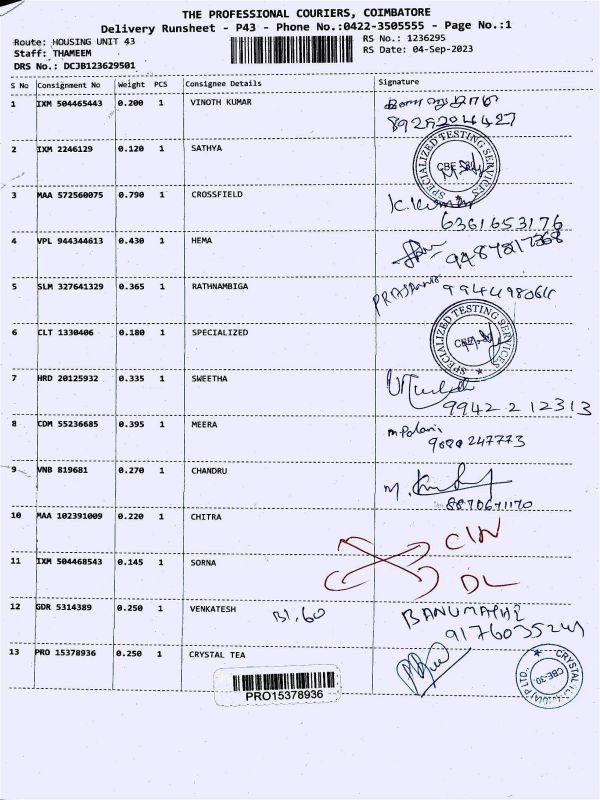 THE PROFESSIONAL COURIERS, COIMBATORE
Delivery Runsheet - P43 - Phone No.:0422-3505555 - Page No.:1
Route: HOUSING UNIT 43
Staff: THAMEEM
DRS No.: DCJB123629501
RS No.: 1236295
RS Date: 04-Sep-2023
S No Consignment No Weight PCS Consignee Details Signature
1 IXM 504465443 0.200 1 VINOTH KUMAR
2 IXM 2246129 0.120 1 SATHYA
SPECIALIZED TESTING SERVICES
3 MAA 572560075 0.790 1 CROSSFIELD K.Kumar
6361653176
4 VPL 944344613 0.430 1 HEMA
5 SLM 327641329 0.365 1 RATHNAMBIGA
9944498064
6 CLT 1330406 0.180 1 SPECIALIZED
SPECIALIZED TESTING SERVICES
7 HRD 20125932 0.335 1 SWEETHA
9942212313
8 CDM 55236685 0.395 1 MEERA
9080247773
9 VNB 819681 0.270 1 CHANDRU
10 MAA 102391009 0.220 1 CHITRA
11 IXM 504468543 0.145 1 SORNA
DL
12 GDR 5314389 0.250 1 VENKATESH B1.60 BANUMATHI
13 PRO 15378936 0.250 1 CRYSTAL TEA
PRO15378936
CBE-30.